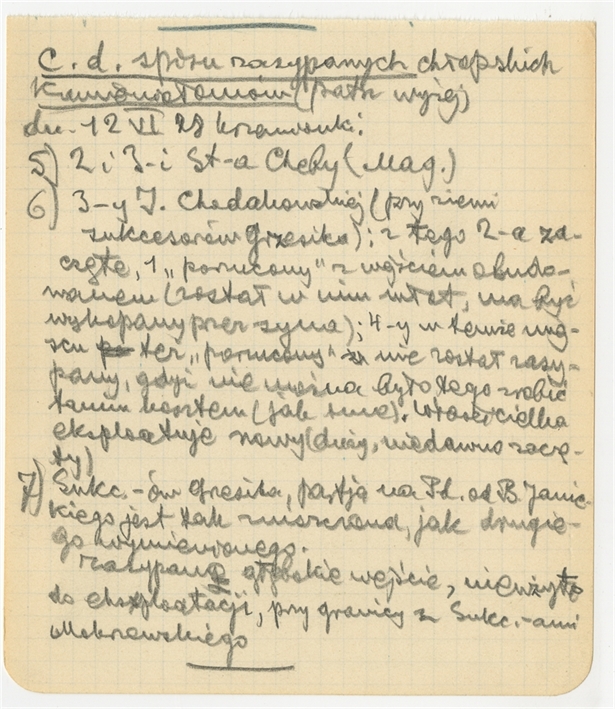 C. d. spisu zasypanych chłopskich
kamieniołomów (patrz wyżej)
dn. 12 VI 28 Krzemionki:
5) 2 i 3-i St-a Cheby (Mag.)
6) 3-y J. Chedakowskiej (przy ziemi
sukcesorów Grzesika); z tego 2-a za-
częte, 1 „porzucony” z wejściem obudo-
wanem (został w nim młot, ma być
wykopany przez syna); 4-y w temże miej-
scu też „porzucony” nie został zasy-
pany, gdyż nie można było tego zrobić
tanim kosztem (jak inne). Właścicielka
eksploatuje nowy (duży, niedawno zaczę-
ty)
7) Sukc.-ów Grzesika, partja na Pd. od B. Janic-
kiego jest tak zniszczona, jak drugie-
go wymienionego.
Zasypano głębokie wejście, nieużyte
do eksploatacji, przy granicy z Sukc.-ami
Mokrzewskiego